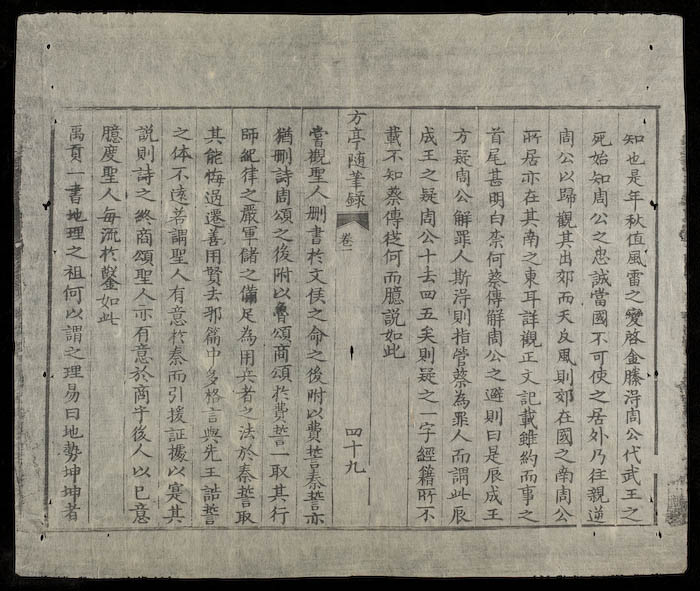 知也是年秋值風雷之變啓金縢淂周公代武王之
死始知周公之忠誠當國不可使之居外乃往親逆
周公以歸觀其出郊而天反風則郊在國之南周公
所居亦在其南之東耳詳觀正文記載雖約而事之
首尾甚明白柰何蔡傳解周公之避則曰是辰成王
方疑周公解罪人斯淂則指管蔡為罪人而謂此辰
成王之疑周公十去四五矣則疑之一字經籍所不
載不知蔡傳從何而臆説如此
方亭随筆録 卷一 四十九
嘗觀聖人刪書於文侯之命之後附以費誓秦誓亦
猶刪詩周頌之後附以魯頌商頌於費誓一取其行
師紀律之嚴軍儲之備足為用兵者之法於秦誓取
其能悔過遷善用賢去邪篇中多格言與先王誥誓
之体不遠若謂聖人有意於秦而引援証據以寔其
説則詩之終商頌聖人亦有意於商乎後人以己意
臆度聖人每流於鑿如此
禹貢一書地理之祖何以謂之理易曰地勢坤坤者